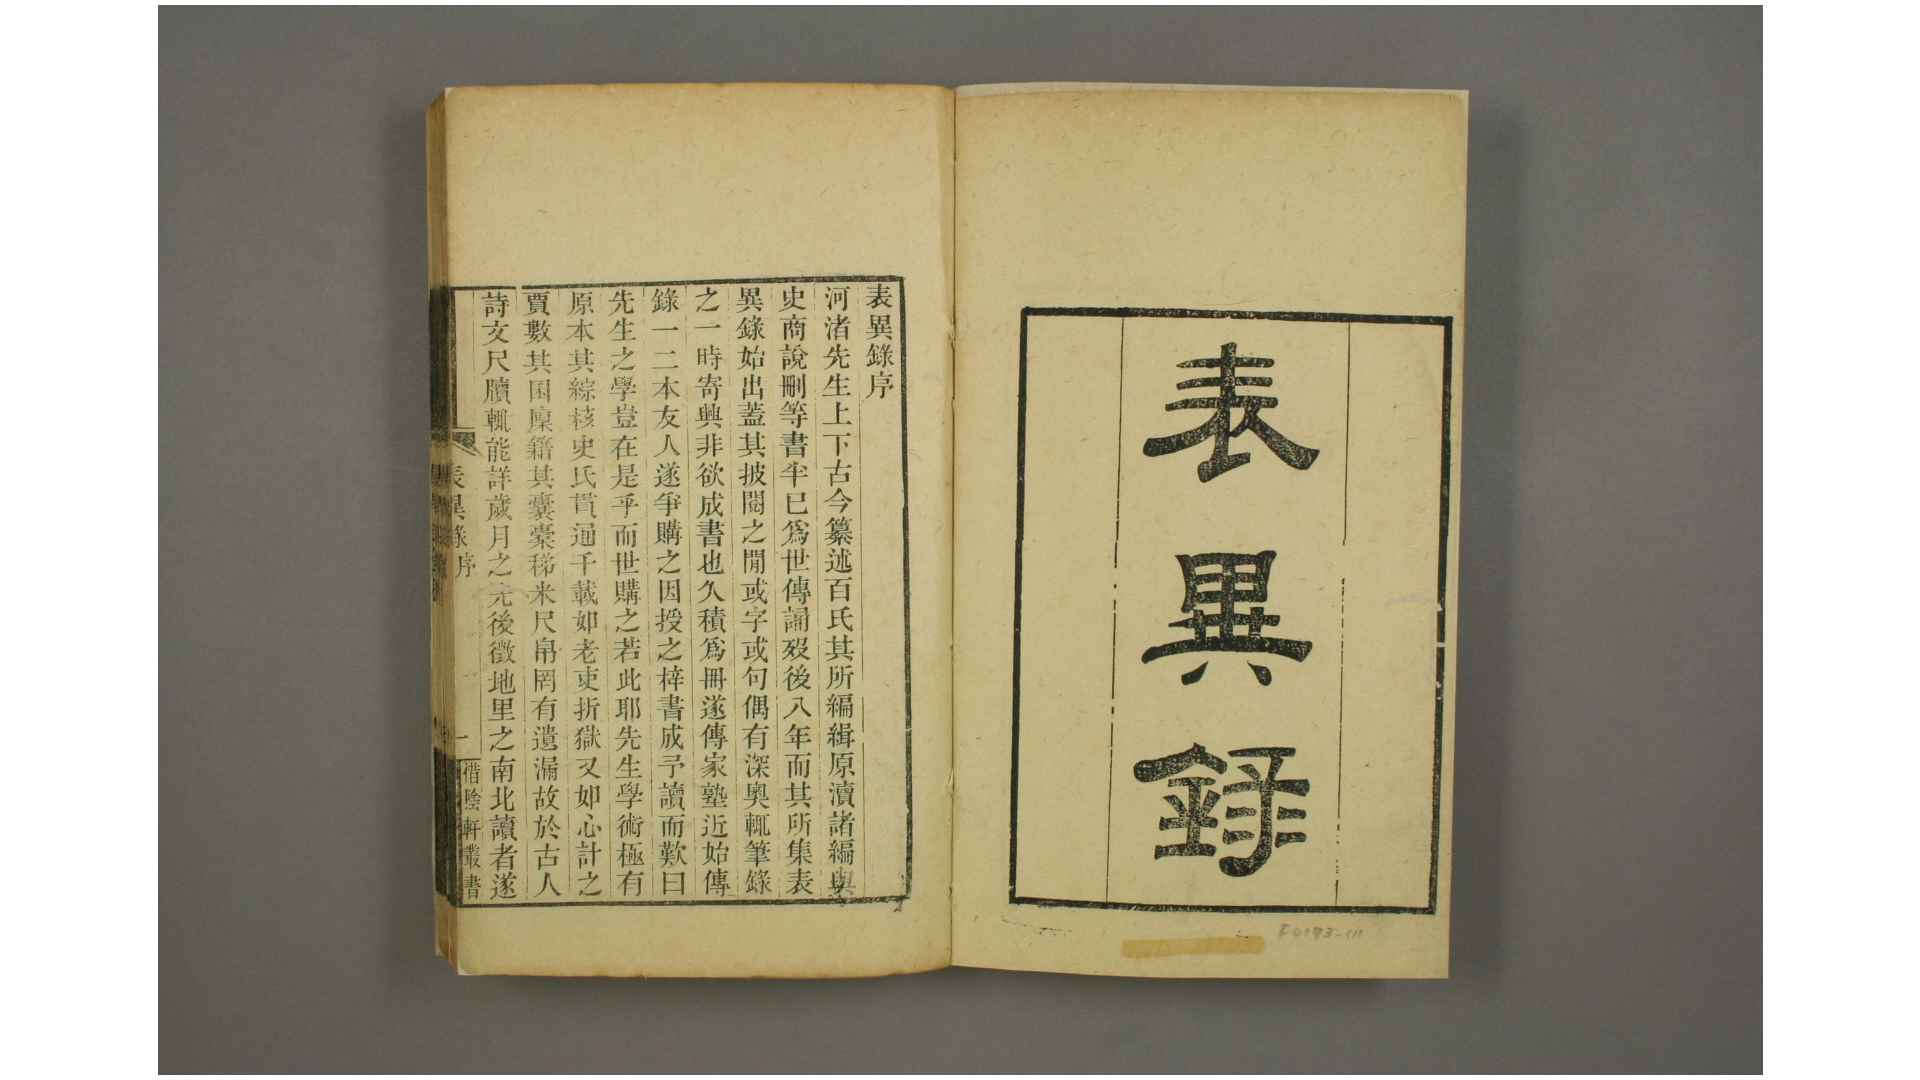 表異錄
表異錄序
河渚先生上下古今纂述百氏其所編緝原瀆諸編與
史商說刪等書半已爲世傳誦歿後八年而其所集表
異錄始出蓋其披閱之閒或字或句偶有深奧輒筆錄
之一時寄興非欲成書也久積爲冊遂傳家塾近始傳
錄一二本友人遂爭購之因授之梓書成予讀而歎曰
先生之學豈在是乎而世購之若此耶先生學術極有
原本其綜核史氏貫通千載如老吏折獄又如心計之
賈數其囷廩籍其囊橐稊米尺帛罔有遺漏故於古人
詩文尺牘輒能詳歲月之先後徵地里之南北讀者遂
表異錄序
一
借陰軒叢書